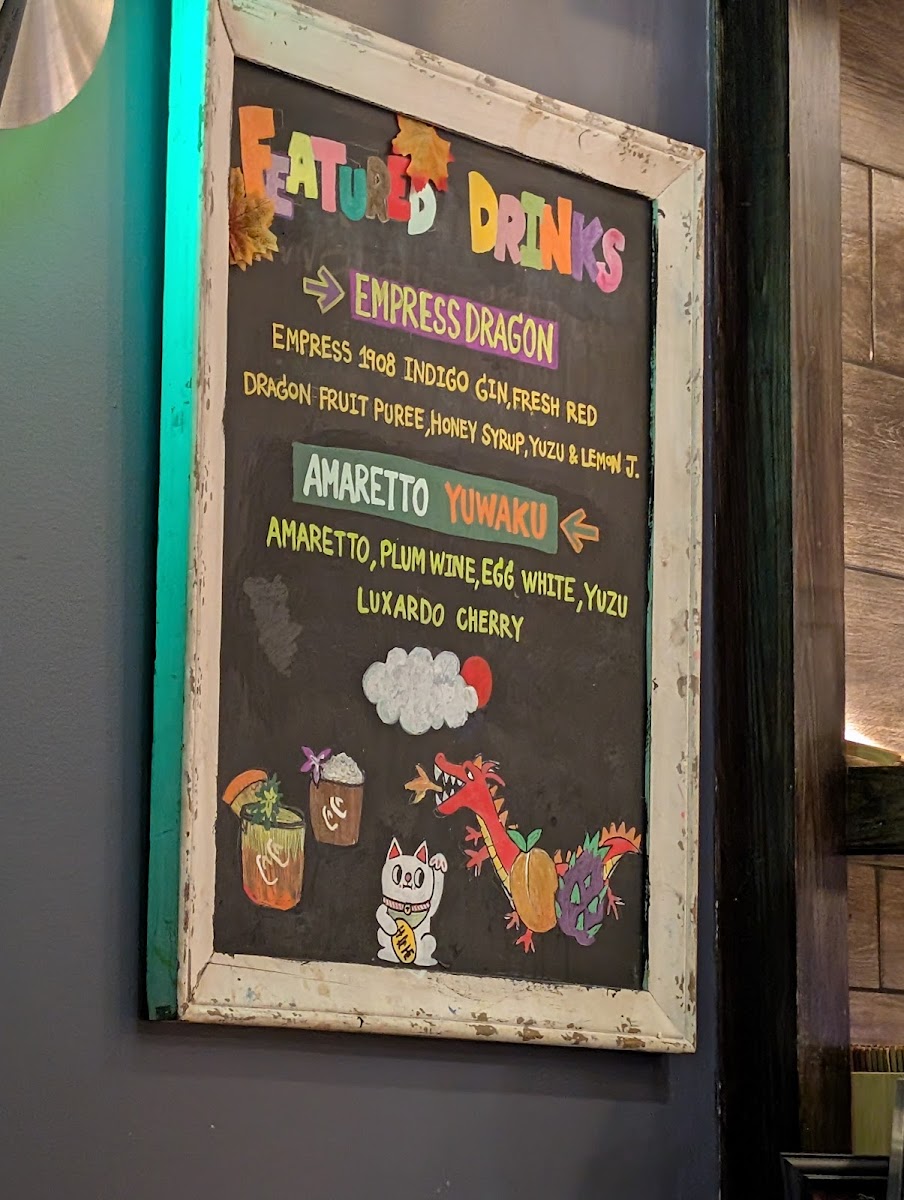 FEATURED DRINKS
EMPRESS DRAGON
EMPRESS 1908 INDIGO GIN, FRESH RED
DRAGON FRUIT PUREE, HONEY SYRUP, YUZU & LEMON J.
AMARETTO YUWAKU
AMARETTO, PLUM WINE, EGG WHITE, YUZU
LUXARDO CHERRY